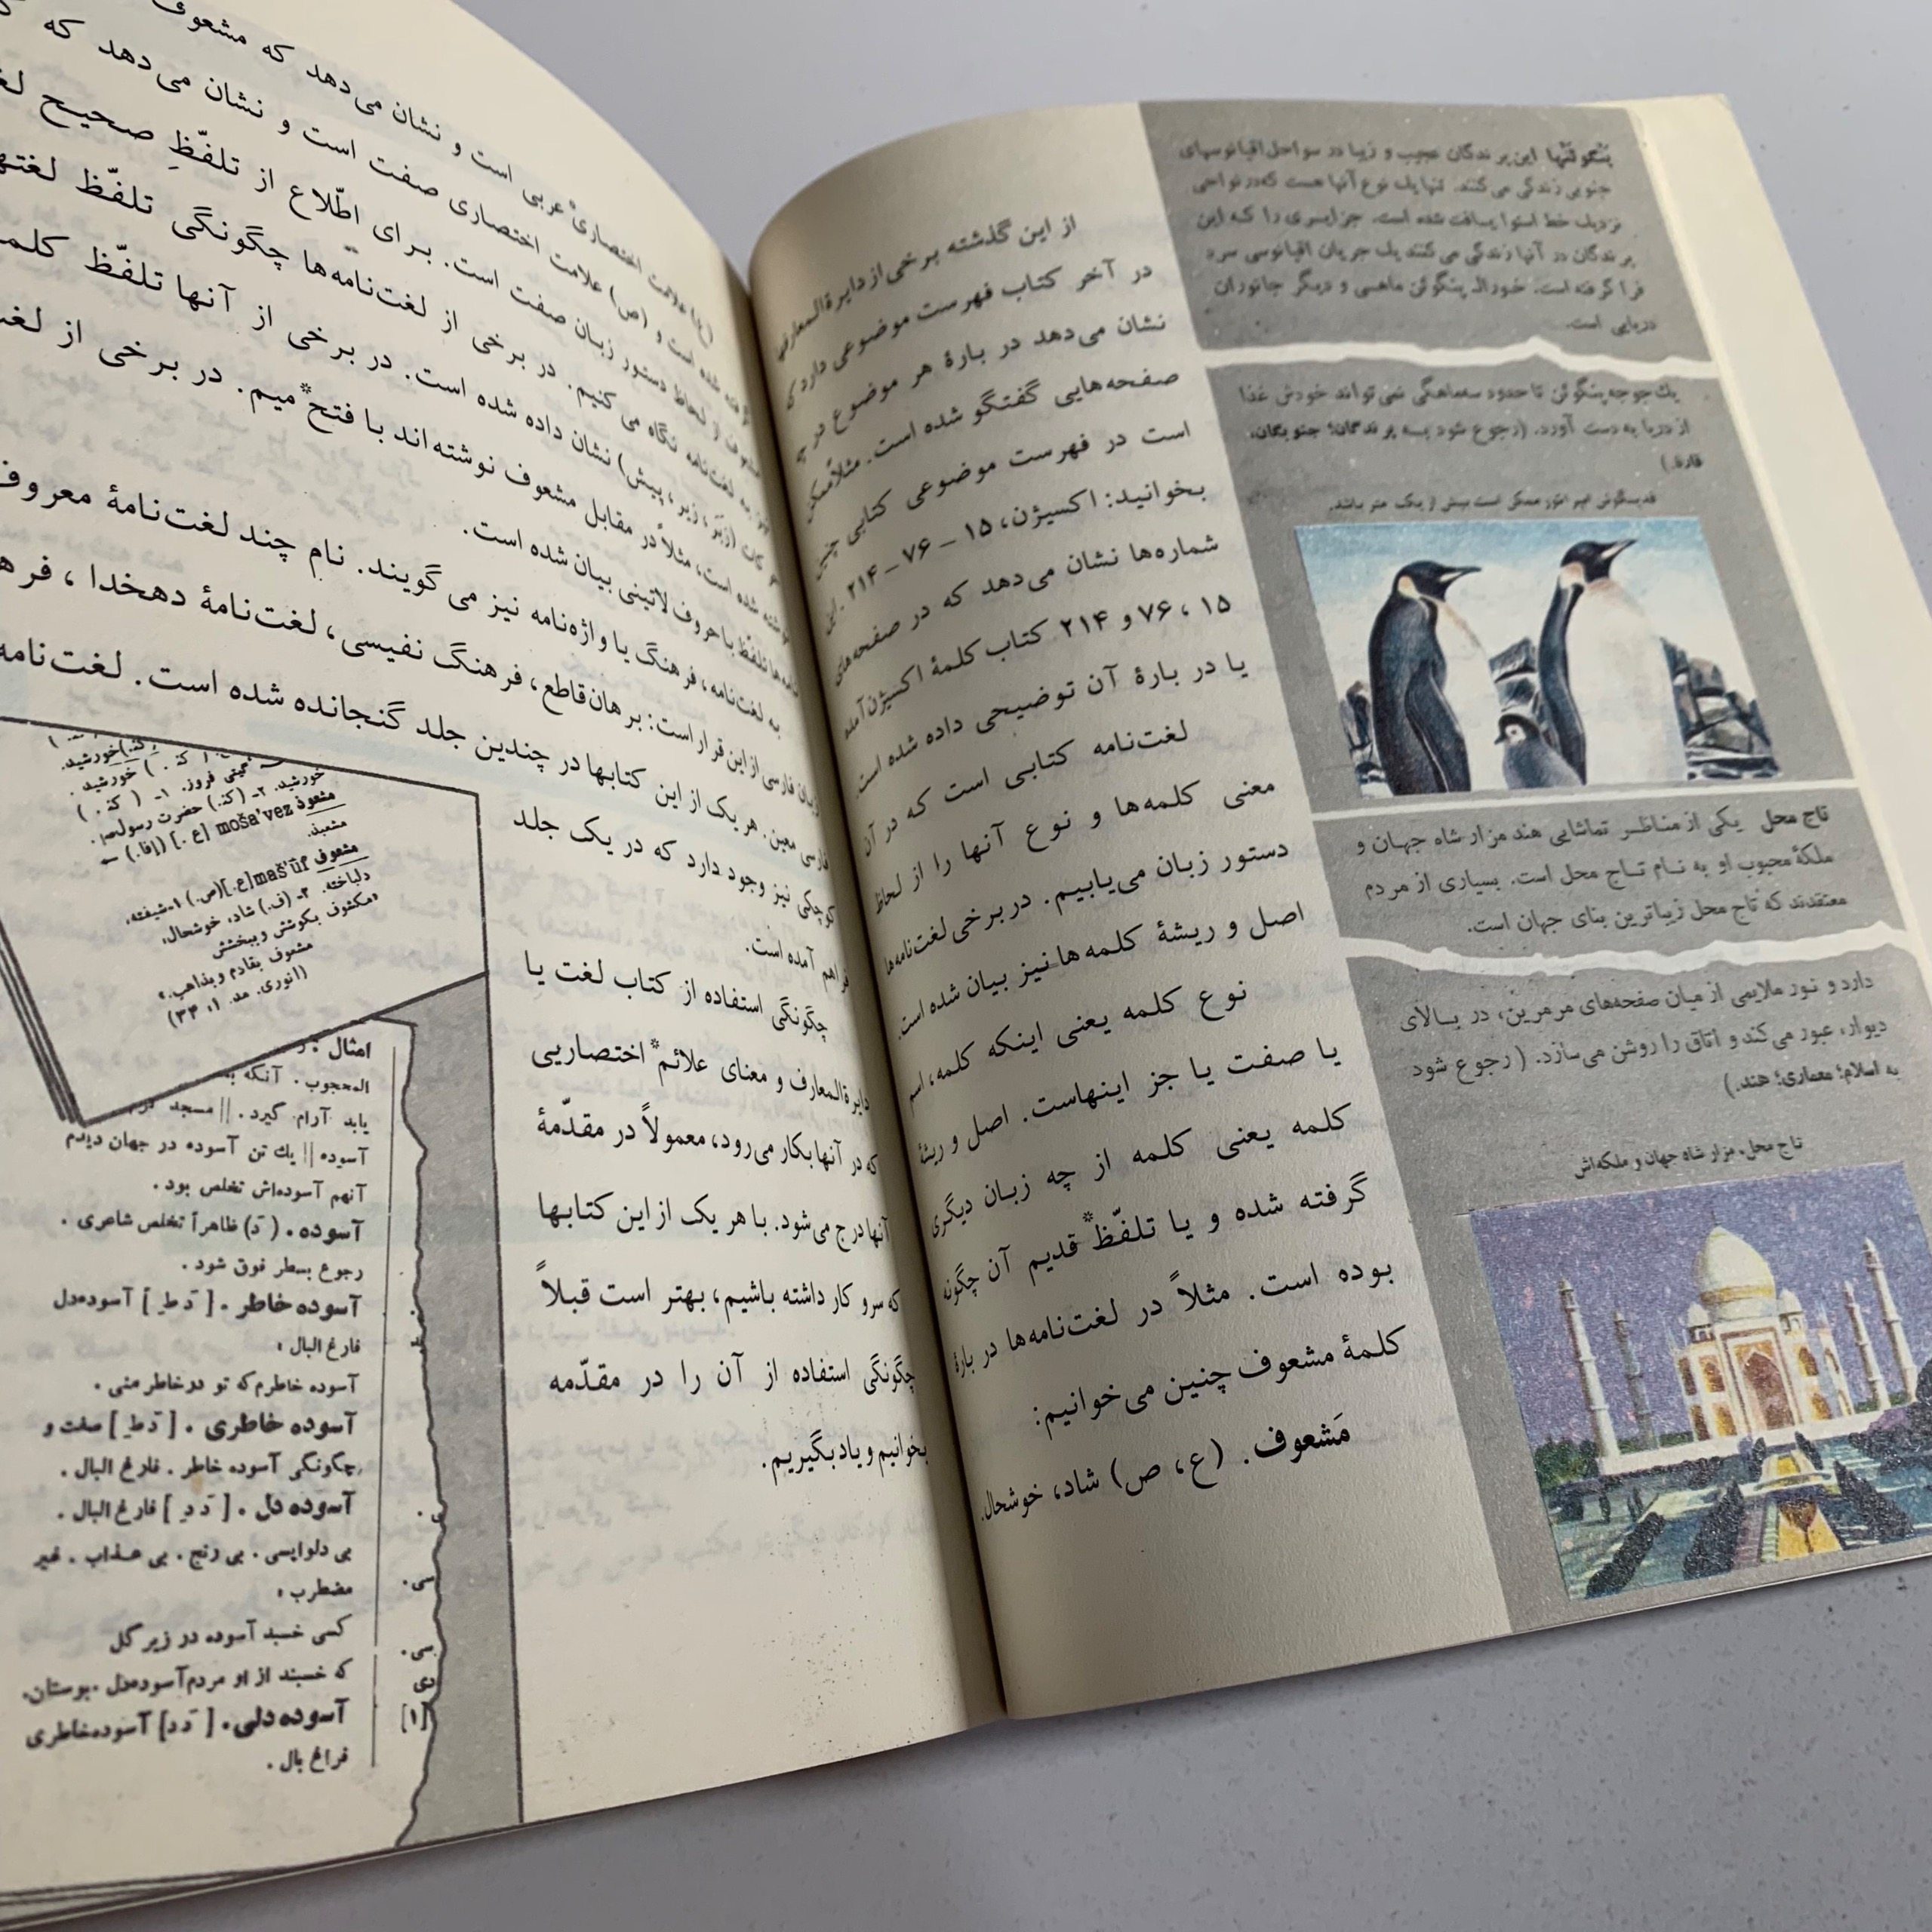 از این گذشته برخی از دایرةالمعارفها
در آخر کتاب فهرست موضوعی دارد که
نشان می‌دهد در بارهٔ هر موضوع در چه
صفحه‌هایی گفتگو شده است. مثلاً ممکن
است در فهرست موضوعی کتابی چنین
بخوانید: اکسیژن، ۱۵ – ۷۶ – ۲۱۴. این
شماره‌ها نشان می‌دهد که در صفحه‌های
۱۵ ، ۷۶ و ۲۱۴ کتاب کلمهٔ اکسیژن آمده
یا در بارهٔ آن توضیحی داده شده است.
لغت‌نامه کتابی است که در آن
معنی کلمه‌ها و نوع آنها را از لحاظ
دستور زبان می‌یابیم. در برخی لغت‌نامه‌ها
اصل و ریشهٔ کلمه‌ها نیز بیان شده است.
نوع کلمه یعنی اینکه کلمه، اسم
یا صفت یا جز اینهاست. اصل و ریشهٔ
کلمه یعنی کلمه از چه زبان دیگری
گرفته شده و یا تلفّظ* قدیم آن چگونه
بوده است. مثلاً در لغت‌نامه‌ها در بارهٔ
کلمهٔ مشعوف چنین می‌خوانیم:
مَشعوف. (ع، ص) شاد، خوشحال.
پنگوئنها این پرندگان عجیب و زیبا در سواحل اقیانوسهای
جنوبی زندگی می‌کنند. تنها یك نوع آنها هست که در نواحی
نزدیك خط استوا یافت شده است. جزایری را که این
پرندگان در آنها زندگی می‌کنند یك جریان اقیانوسی سرد
فرا گرفته است. خوراك پنگوئن ماهی و دیگر جانوران
دریایی است.
یك جوجه پنگوئن تا حدود سه‌ماهگی نمی‌تواند خودش غذا
از دریا به دست آورد. (رجوع شود به پرندگان؛ جنوبگان،
قارهٔ.)
قد پنگوئن امپراتور ممکن است بیش از یک متر باشد.
تاج محل یکی از مناظر تماشایی هند مزار شاه جهان و
ملکهٔ محبوب او به نام تاج محل است. بسیاری از مردم
معتقدند که تاج محل زیباترین بنای جهان است.
دارد و نور ملایمی از میان صفحه‌های مرمرین، در بالای
دیوار، عبور می‌کند و اتاق را روشن می‌سازد. ( رجوع شود
به اسلام؛ معماری؛ هند.)
تاج محل، مزار شاه جهان و ملکه‌اش
(ع) علامت اختصاری* عربی است و نشان می‌دهد که مشعوف
گرفته شده است و (ص) علامت اختصاری صفت است و نشان می‌دهد که
مشعوف از لحاظ دستور زبان صفت است. برای اطّلاع از تلفّظِ صحیح
به لغت‌نامه نگاه می‌کنیم. در برخی از لغت‌نامه‌ها چگونگی تلفّظ
حرکات (زبَر، زیر، پیش) نشان داده شده است. در برخی از آنها تلفّظ
نوشته شده است، مثلاً در مقابل مشعوف نوشته‌اند با فتح* میم. در برخی از
نامه‌ها تلفّظ با حروف لاتینی بیان شده است.
به لغت‌نامه، فرهنگ یا واژه‌نامه نیز می‌گویند. نام چند لغت‌نامهٔ معروف
زبان فارسی از این قرار است: برهان قاطع، فرهنگ نفیسی، لغت‌نامهٔ دهخدا ،
فارسی معین. هر یک از این کتابها در چندین جلد گنجانده شده است.
کوچکی نیز وجود دارد که در یک جلد
فراهم آمده است.
چگونگی استفاده از کتاب لغت یا
دایرةالمعارف و معنای علائم* اختصاریی
که در آنها بکار می‌رود، معمولاً در مقدّمهٔ
آنها درج می‌شود. با هر یک از این کتابها
که سرو کار داشته باشیم، بهتر است قبلاً
چگونگی استفاده از آن را در مقدّمه
بخوانیم و یاد بگیریم.
خورشید.
گیتی فروز. ۱- ( کذ. ) خورشید.
خورشید. ۲- (کذ.) حضرت رسول
مشعوذ moša'vez [ع.] (إفا.)
مشعبذ.
مشعوف maš'ūf [ع.] (ص.) ۱- شیفته،
دلباخته. ۲- (ف.) شاد، خوشحال،
مشعوف بقادم و بذاهب.»
(انوری. مد. ۱، ۳۳)
امثال :
المحجوب . آنکه
یابد آرام گیرد . || مسجد
آسوده || یك تن آسوده در جهان دیدم
آنهم آسوده‌اش تخلص بود .
آسوده . (دَ) ظاهراً تخلص شاعری .
رجوع بسطر فوق شود .
آسوده خاطر . [ دَ طِ ] آسوده‌دل
فارغ البال ،
آسوده خاطرم که تو در خاطر منی .
آسوده خاطری . [ دَ طِ ] صفت و
چگونگی آسوده خاطر . فارغ البال .
آسوده دل . [ دَ دِ ] فارغ البال .
بی دلواپسی . بی رنج . بی عذاب . غیر
مضطرب ،
کسی خسبد آسوده در زیر گل
که خسبند از او مردم آسوده‌دل . بوستان.
آسوده دلی . [ دَ دِ ] آسوده‌خاطری
فراغ بال .